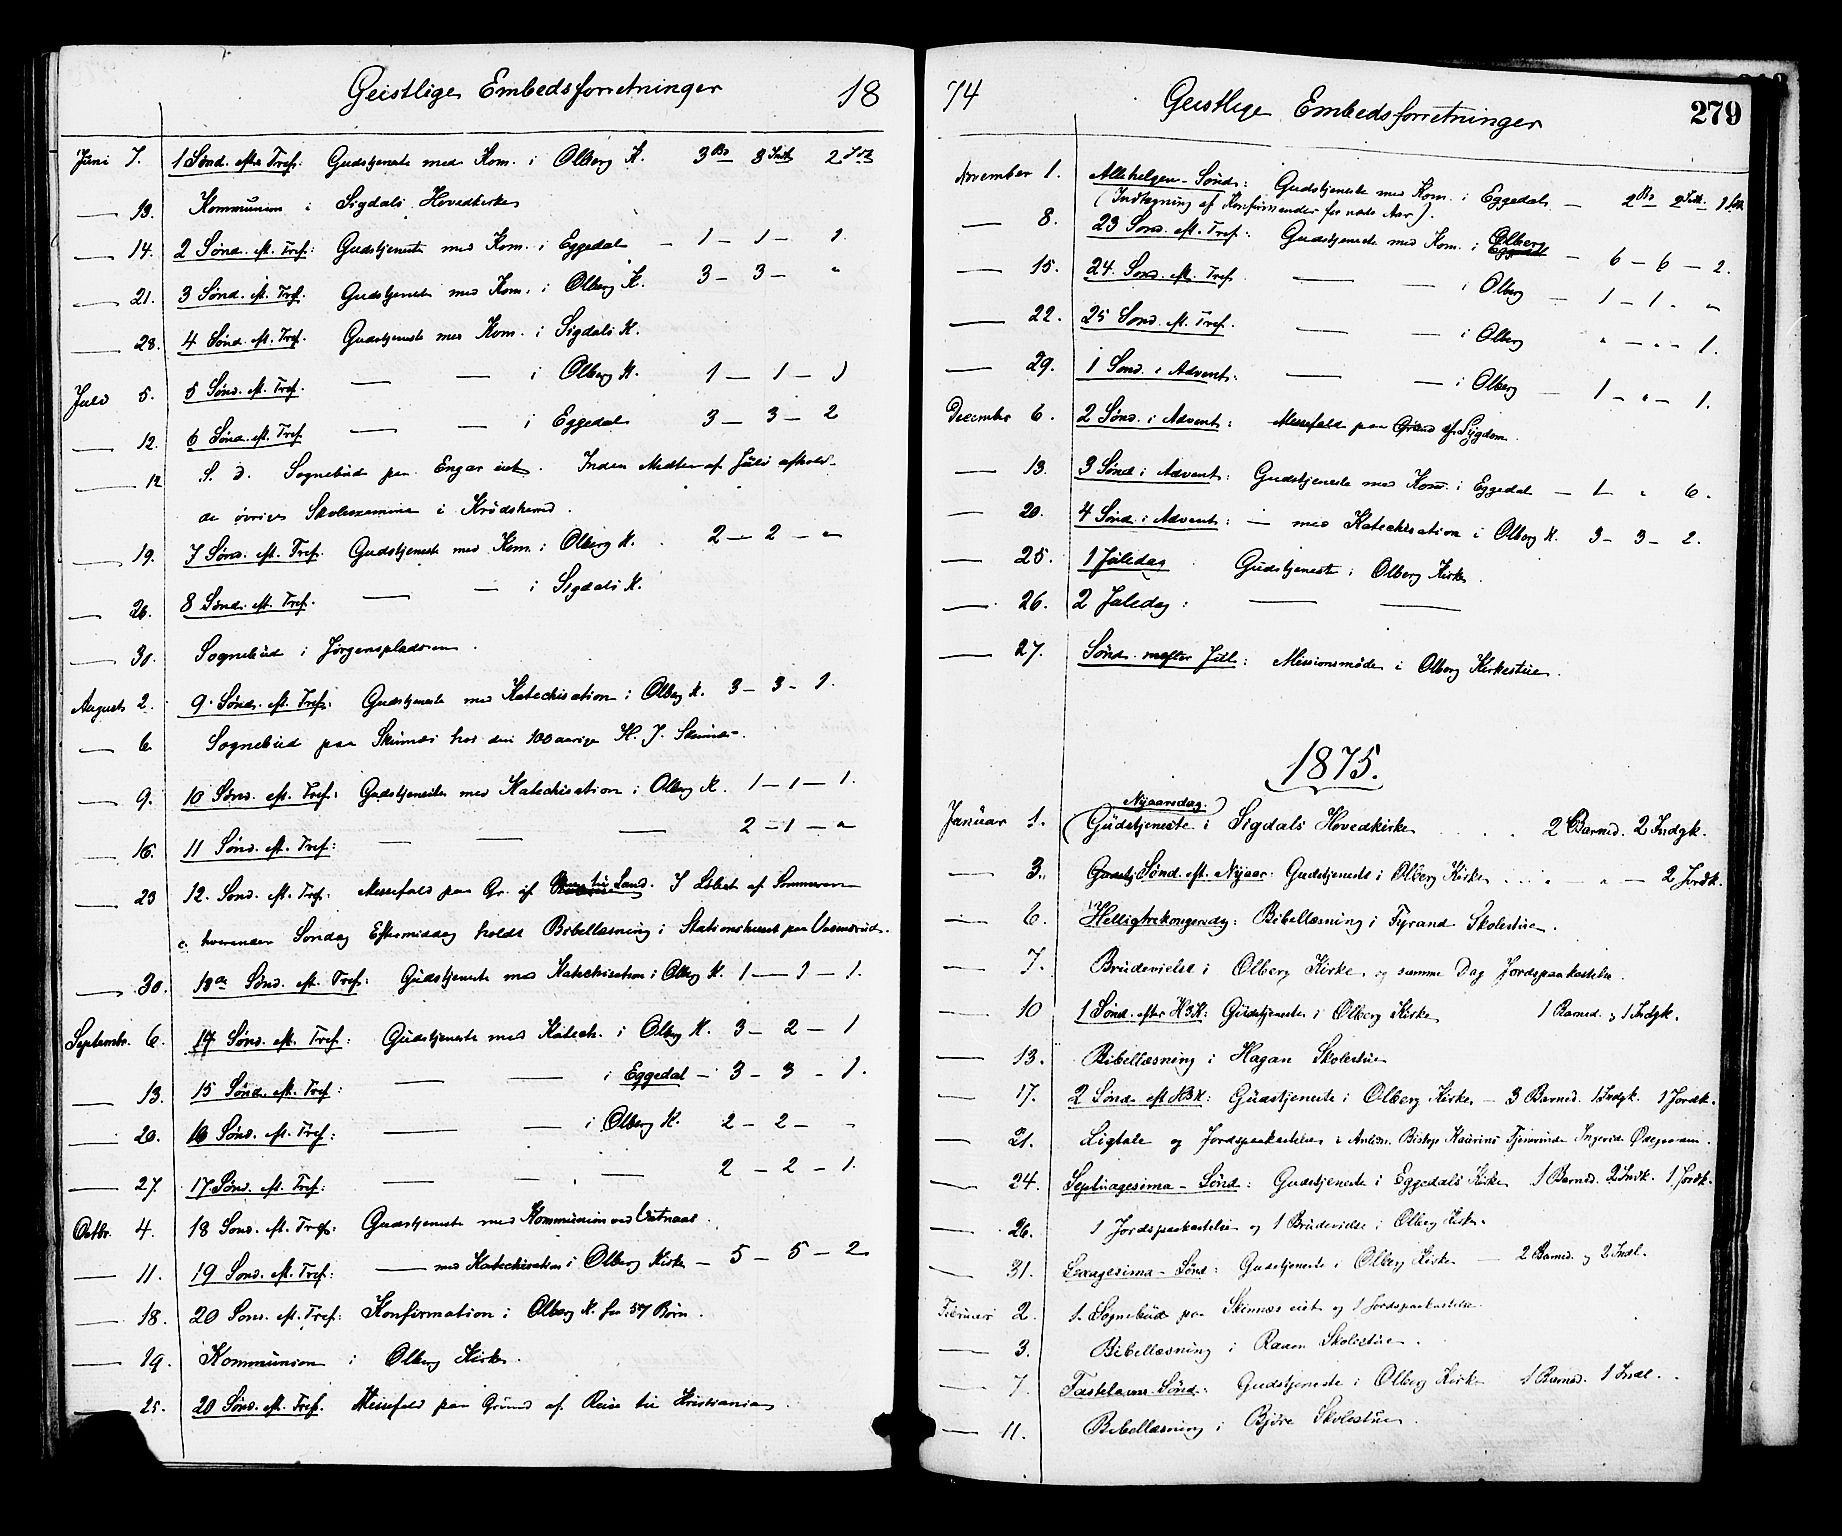 Geistlige Embedsforretninger 18
Juni 7. 1 Sønd. efter Tref: Gudstjeneste med Kom. i Olberg K. 3 Bd 3 Indl 2 Jordk
— 13. Kommunion i Sigdals Hovedkirke
— 14. 2 Sønd. eft. Tref: Gudstjeneste med Kom. i Eggedal — 1 — 1 — 1.
— 21. 3 Sønd. eft. Tref. Gudstjeneste med Kom. i Olberg K. 3 — 3 — "
— 28. 4 Sønd. eft. Tref. Gudstjeneste med Kom. i Sigdals K.
Juli 5. 5 Sønd. eft. Tref. — — i Olberg K. 1 — 1 — 1
— 12. 6 Sønd. eft. Tref — — i Eggedal 3 — 3 — 2
— 12 S. D. Sognebud paa Engar eiet. Inden Midten af Juli afhold-
de øvrige Skoleexamina i Krødsherred.
— 19. 7 Sønd. eft. Tref. Gudstjeneste med Kom. i Olberg K. 2 — 2 — "
— 26. 8 Sønd. eft. Tref. — — i Sigdals K.
— 30. Sognebud i Jørgenspladsen.
August 2. 9. Sønd. eft. Tref: Gudstjeneste med Katechisation i Olberg K. 3 — 3 — 1.
— 6 Sognebud paa Skinnes hos den 100 aarige H. J. Skinnes.
— 9. 10 Sønd. eft. Tref: Gudstjeneste med Katechisation i Olberg K. 1 — 1 — 1.
— 16. 11 Sønd. eft. Tref: — — — 2 — 1 — "
— 23 12. Sønd. eft. Tref: Messefald paa Gr. af Land. I Løbet af Sommeren
hveranden Søndag Eftermiddag holdt Bibellæsning i Stationshuset paa
— 30. 13de Sønd. eft. Tref: Gudstjeneste med Katechisation i Olberg K. 1 — 1 — 1.
Septembr. 6. 14 Sønd. eft. Tref: Gudstjeneste med Katech. i Olberg K. 3 — 2 — 1
— 13. 15 Sønd. eft. Tref: — — i Eggedal — 3 — 3 — 1.
— 20. 16 Sønd. eft. Tref: — — i Olberg K. 2 — 2 — "
— 27. 17 Sønd. eft. Tref: — — — 2 — 2 — 1.
Octbr. 4. 18 Sønd. eft. Tref: Gudstjeneste med Kommunion ved Vatnaas.
— 11. 19 Sønd. eft. Tref: — med Katechisation i Olberg Kirke — 5 — 5 — 2
— 18. 20 Sønd. eft. Tref: Konfirmation i Olberg K. for 57 Børn.
— 19. Kommunion i Olberg Kirke.
— 25. 20 Sønd. eft. Tref. Messefald paa Grund af Reise til Kristiania.
74 Geistlige Embedsforretninger 279
November 1. Allehelgen-Sønd: Gudstjeneste med Kom. i Eggedal — 2 Bd 2 Indl. 1 Jordk
(Indtagning af Konfirmander for næste Aar).
— 8. 23 Sønd. eft. Tref: Gudstjeneste med Kom. i Olberg Eggedal — 6 — 6 — 2.
— 15. 24. Sønd. eft. Tref. — — i Olberg — 1 — 1. "
— 22. 25 Sønd. eft. Tref. — — i Olberg " — " — 1.
— 29. 1 Sønd. i Advent: — — i Olberg — 1 — " — 1.
December 6. 2 Sønd. i Advent: Messefald paa Grund af Sygdom.
— 13. 3 Sønd i Advent: Gudstjeneste med Kom. i Eggedal — 1 " 6.
— 20. 4 Sønd i Advent: — med Katechisation i Olberg K. 3 — 3 — 2.
— 25. 1 Juledag. Gudstjeneste i Olberg Kirke.
— 26. 2 Juledag: — —
— 27. Sønd. efter Jul: Missionsmøde i Olberg Kirkestue.
1875.
Nyaarsdag.
Januar 1. Gudstjeneste i Sigdals Hovedkirke . . . 2 Barned. 2 Indgk.
— 3. Sønd. eft. Nyaar: Gudstjeneste i Olberg Kirke . . . " — 2 Jordk.
— 6. Helligtrekongersdg: Bibellæsning i Fyrand Skolestue.
— 7. Brudevielse i Olberg Kirke og samme Dag Jordspaakastelse.
— 10 1 Sønd. efter H3K: Gudstjeneste i Olberg Kirke 1 Barned. og 1 Indgk.
— 13. Bibellæsning i Hagan Skolestue
— 17. 2 Sønd. eft H3K: Gudstjeneste i Olberg Kirke — 3 Barned. 1 Indgk. 1 Jordk.
— 21. Ligtale og Jordspaakastelse i Anledn. Biskop Kaurins Tjenerinde Ingerid
— 24. Septuagesima-Sønd: Gudstjeneste i Eggedals Kirke 1 Barned. 2 Indk. 1. Jordk.
— 26. 1 Jordspaakastelse og 1 Brudevielse i Olberg Kirke.
— 31. Sexagesima-Sønd: Gudstjeneste i Olberg Kirke — 2 Barned. og 2 Indl.
Februar 2. 1 Sognebud paa Skinnes eiet og 1 Jordspaakastelse
— 3. Bibellæsning i Raaen Skolestue.
— 7. Fastelavns-Sønd: Gudstjeneste i Olberg Kirke 1 Barned. 1 Indl.
— 11. Bibellæsning i Bjøre Skolestue.